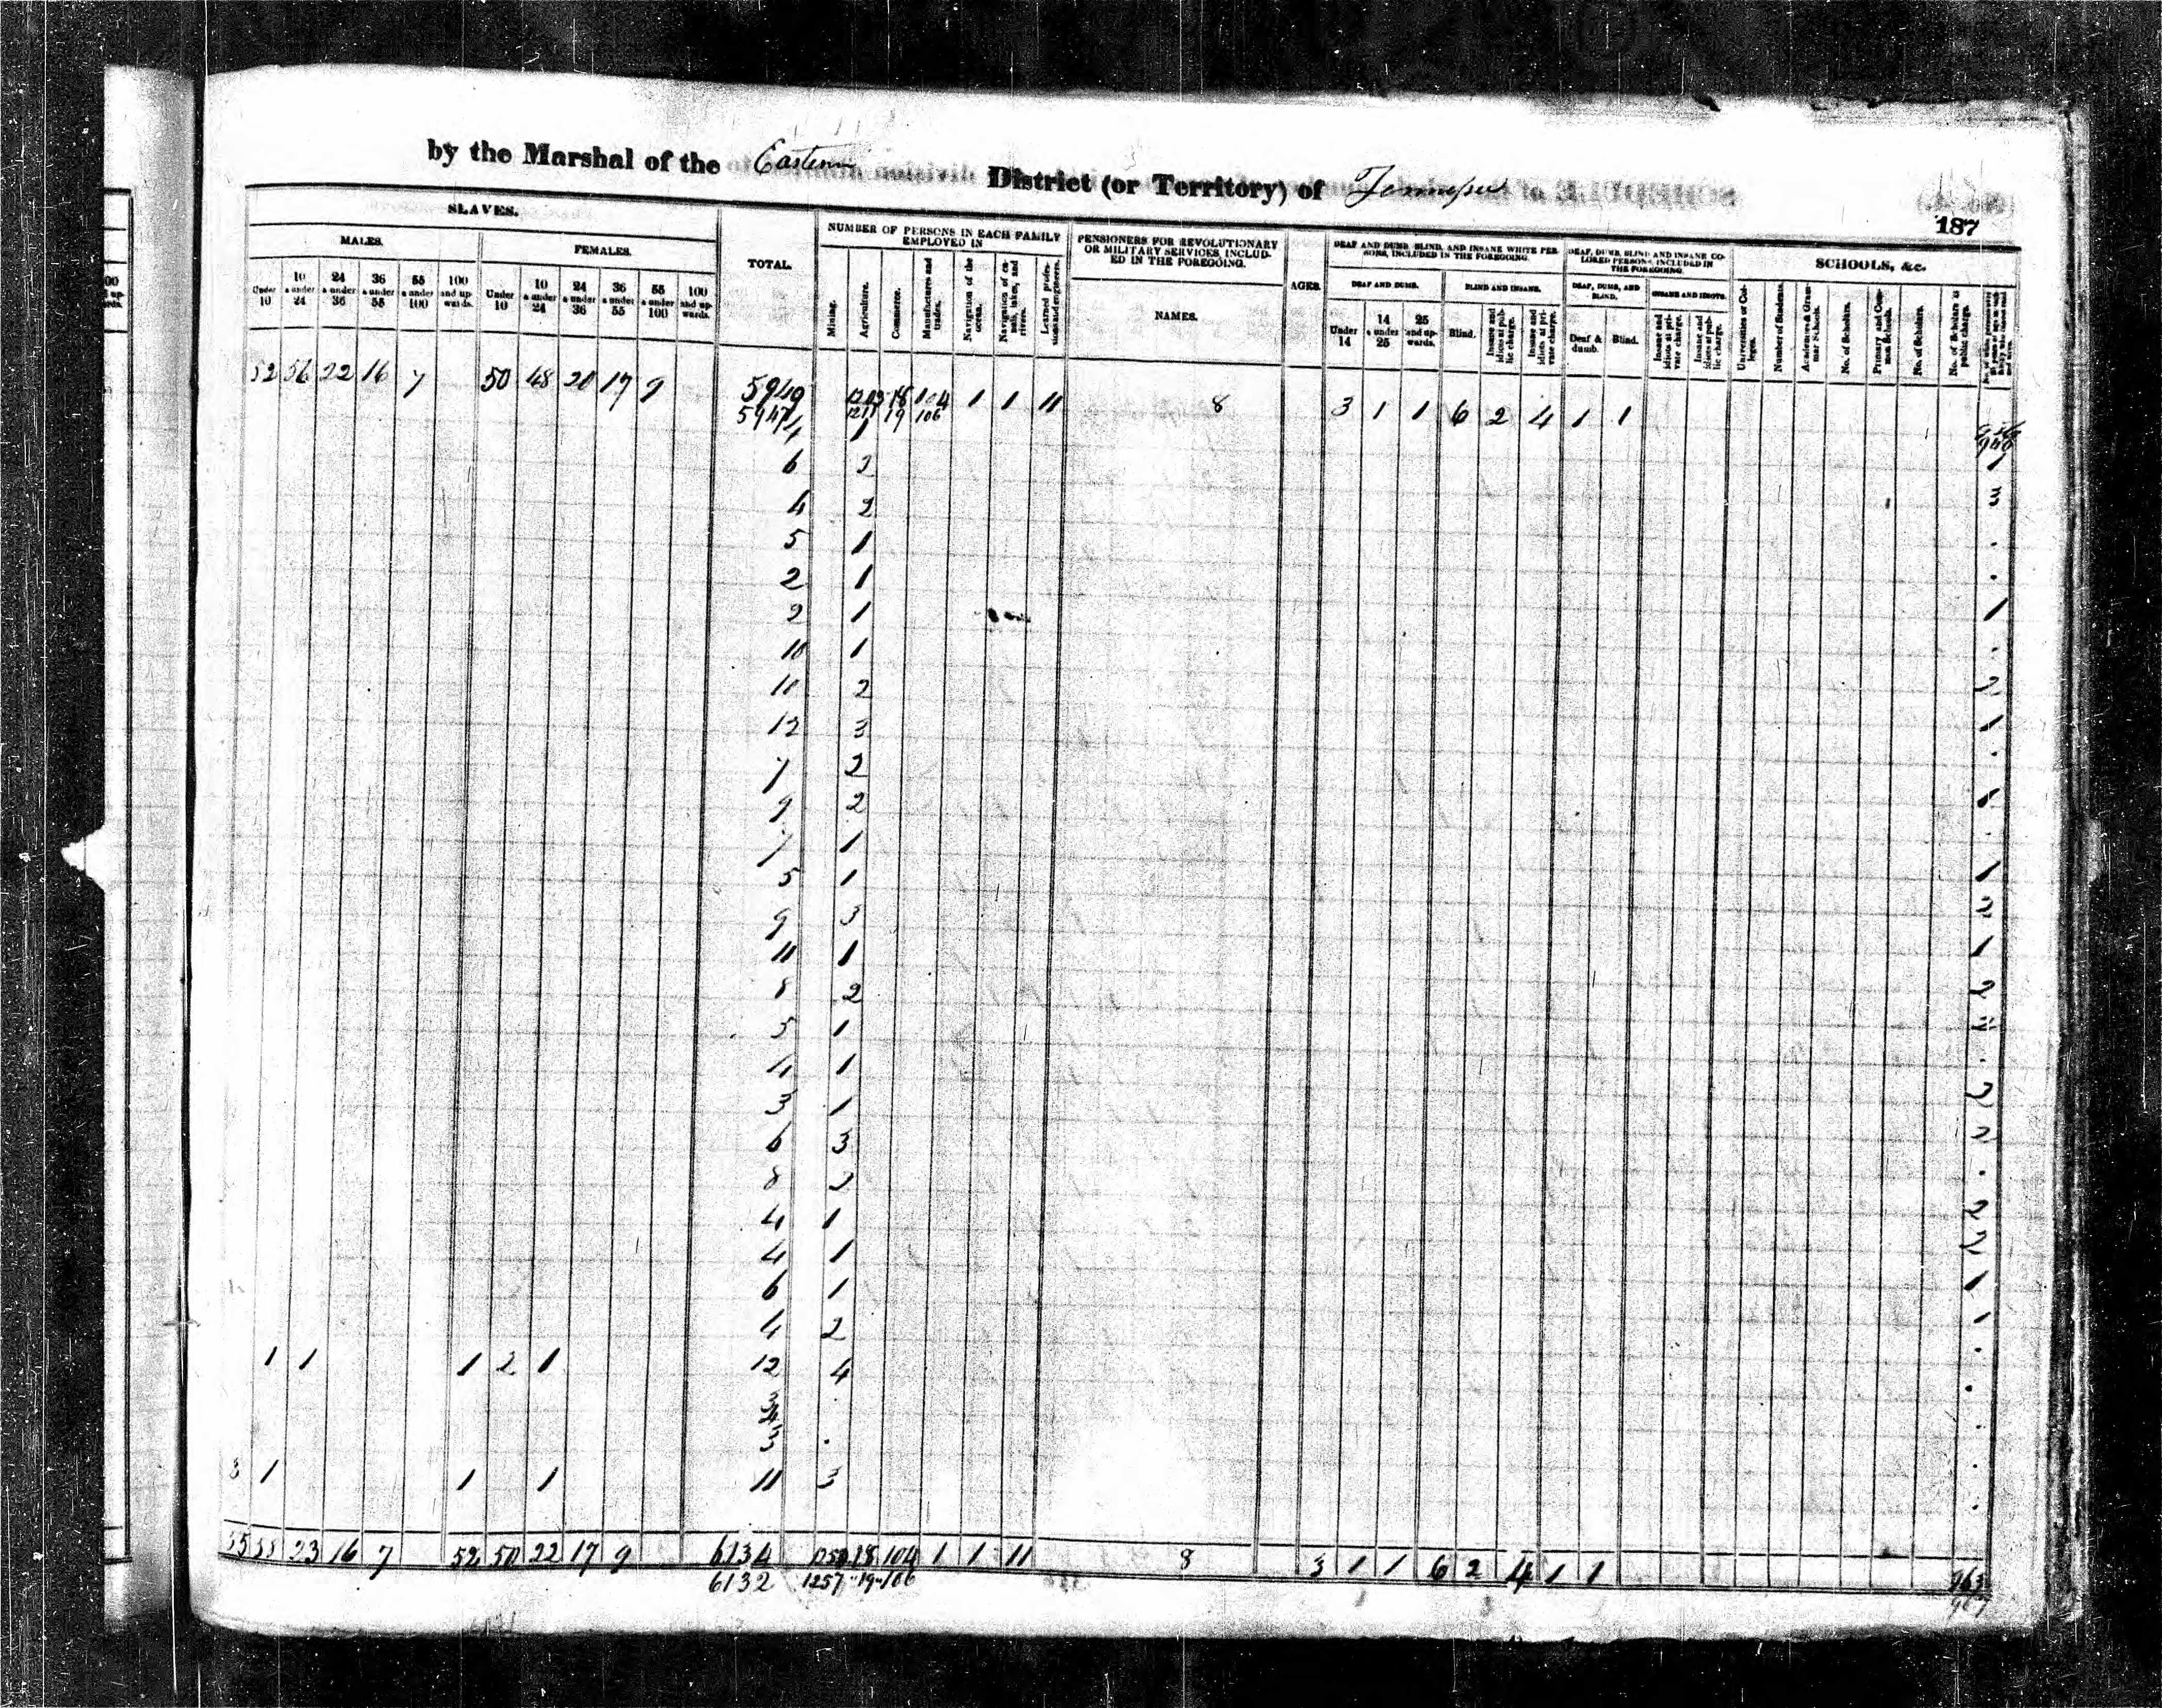 by the Marshal of the Eastern District (or Territory) of Tennessee
187
SLAVES.
MALES.
FEMALES.
TOTAL.
NUMBER OF PERSONS IN EACH FAMILY EMPLOYED IN
PENSIONERS FOR REVOLUTIONARY OR MILITARY SERVICES, INCLUDED IN THE FOREGOING.
NAMES.
AGES.
DEAF AND DUMB, BLIND, AND INSANE WHITE PERSONS, INCLUDED IN THE FOREGOING.
DEAF AND DUMB.
BLIND AND INSANE.
DEAF, DUMB, BLIND AND INSANE COLORED PERSONS, INCLUDED IN THE FOREGOING.
DEAF, DUMB, AND BLIND.
INSANE AND IDIOTS.
SCHOOLS, &c.
Under 10 | 10 & under 24 | 24 & under 36 | 36 & under 55 | 55 & under 100 | 100 and upwards. | Under 10 | 10 & under 24 | 24 & under 36 | 36 & under 55 | 55 & under 100 | 100 and upwards.
Mining. | Agriculture. | Commerce. | Manufactures and trades. | Navigation of the ocean. | Navigation of canals, lakes, and rivers. | Learned professions and engineers.
Under 14 | 14 & under 25 | 25 and upwards. | Blind. | Insane and idiots at public charge. | Insane and idiots at private charge. | Deaf & dumb. | Blind. | Insane and idiots at private charge. | Insane and idiots at public charge.
Universities or Colleges. | Number of Students. | Academies & Grammar Schools. | No. of Scholars. | Primary and Common Schools. | No. of Scholars. | No. of Scholars at public charge.
52 56 22 16 7 50 48 20 17 9 5949 18 104 1 1 11 8 3 1 1 6 2 4 1 1
5947 1211 19 106
4 1 1
6 2 3
4 2
5 1
2 1 1
2 1
10 1 2
10 2 1
12 3
7 2
9 2
7 1 1
5 1 2
9 3 1
11 1 2
8 2
5 1
4 1 2
3 1 2
6 3
8 2 2
4 1 2
4 1 1
6 1 1
4 2
1 1 1 2 1 12 4
3
3 1 1 1 11 3
55 58 23 16 7 52 50 22 17 9 6134 18 104 1 1 11 8 3 1 1 6 2 4 1 1 963
6132 1257 19 106